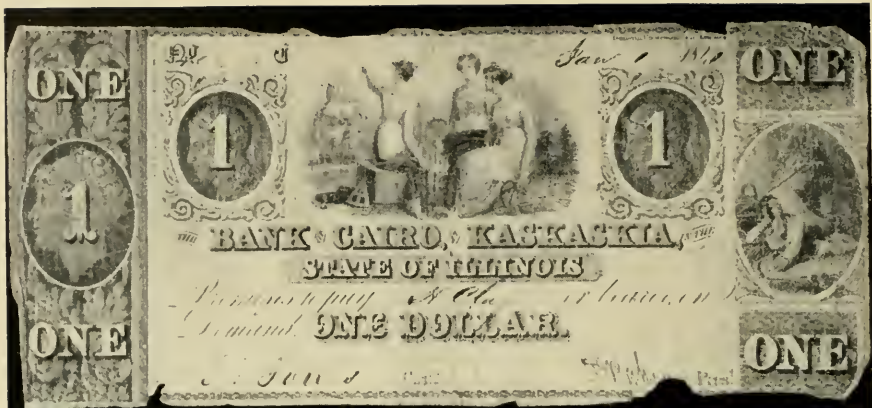 ONE
1
ONE
No C
Jan 1 1840
1
1
THE BANK OF CAIRO, AT KASKASKIA, IN THE
STATE OF ILLINOIS
Promises to pay or bearer on
Demand ONE DOLLAR.
Cash Prest
ONE
ONE